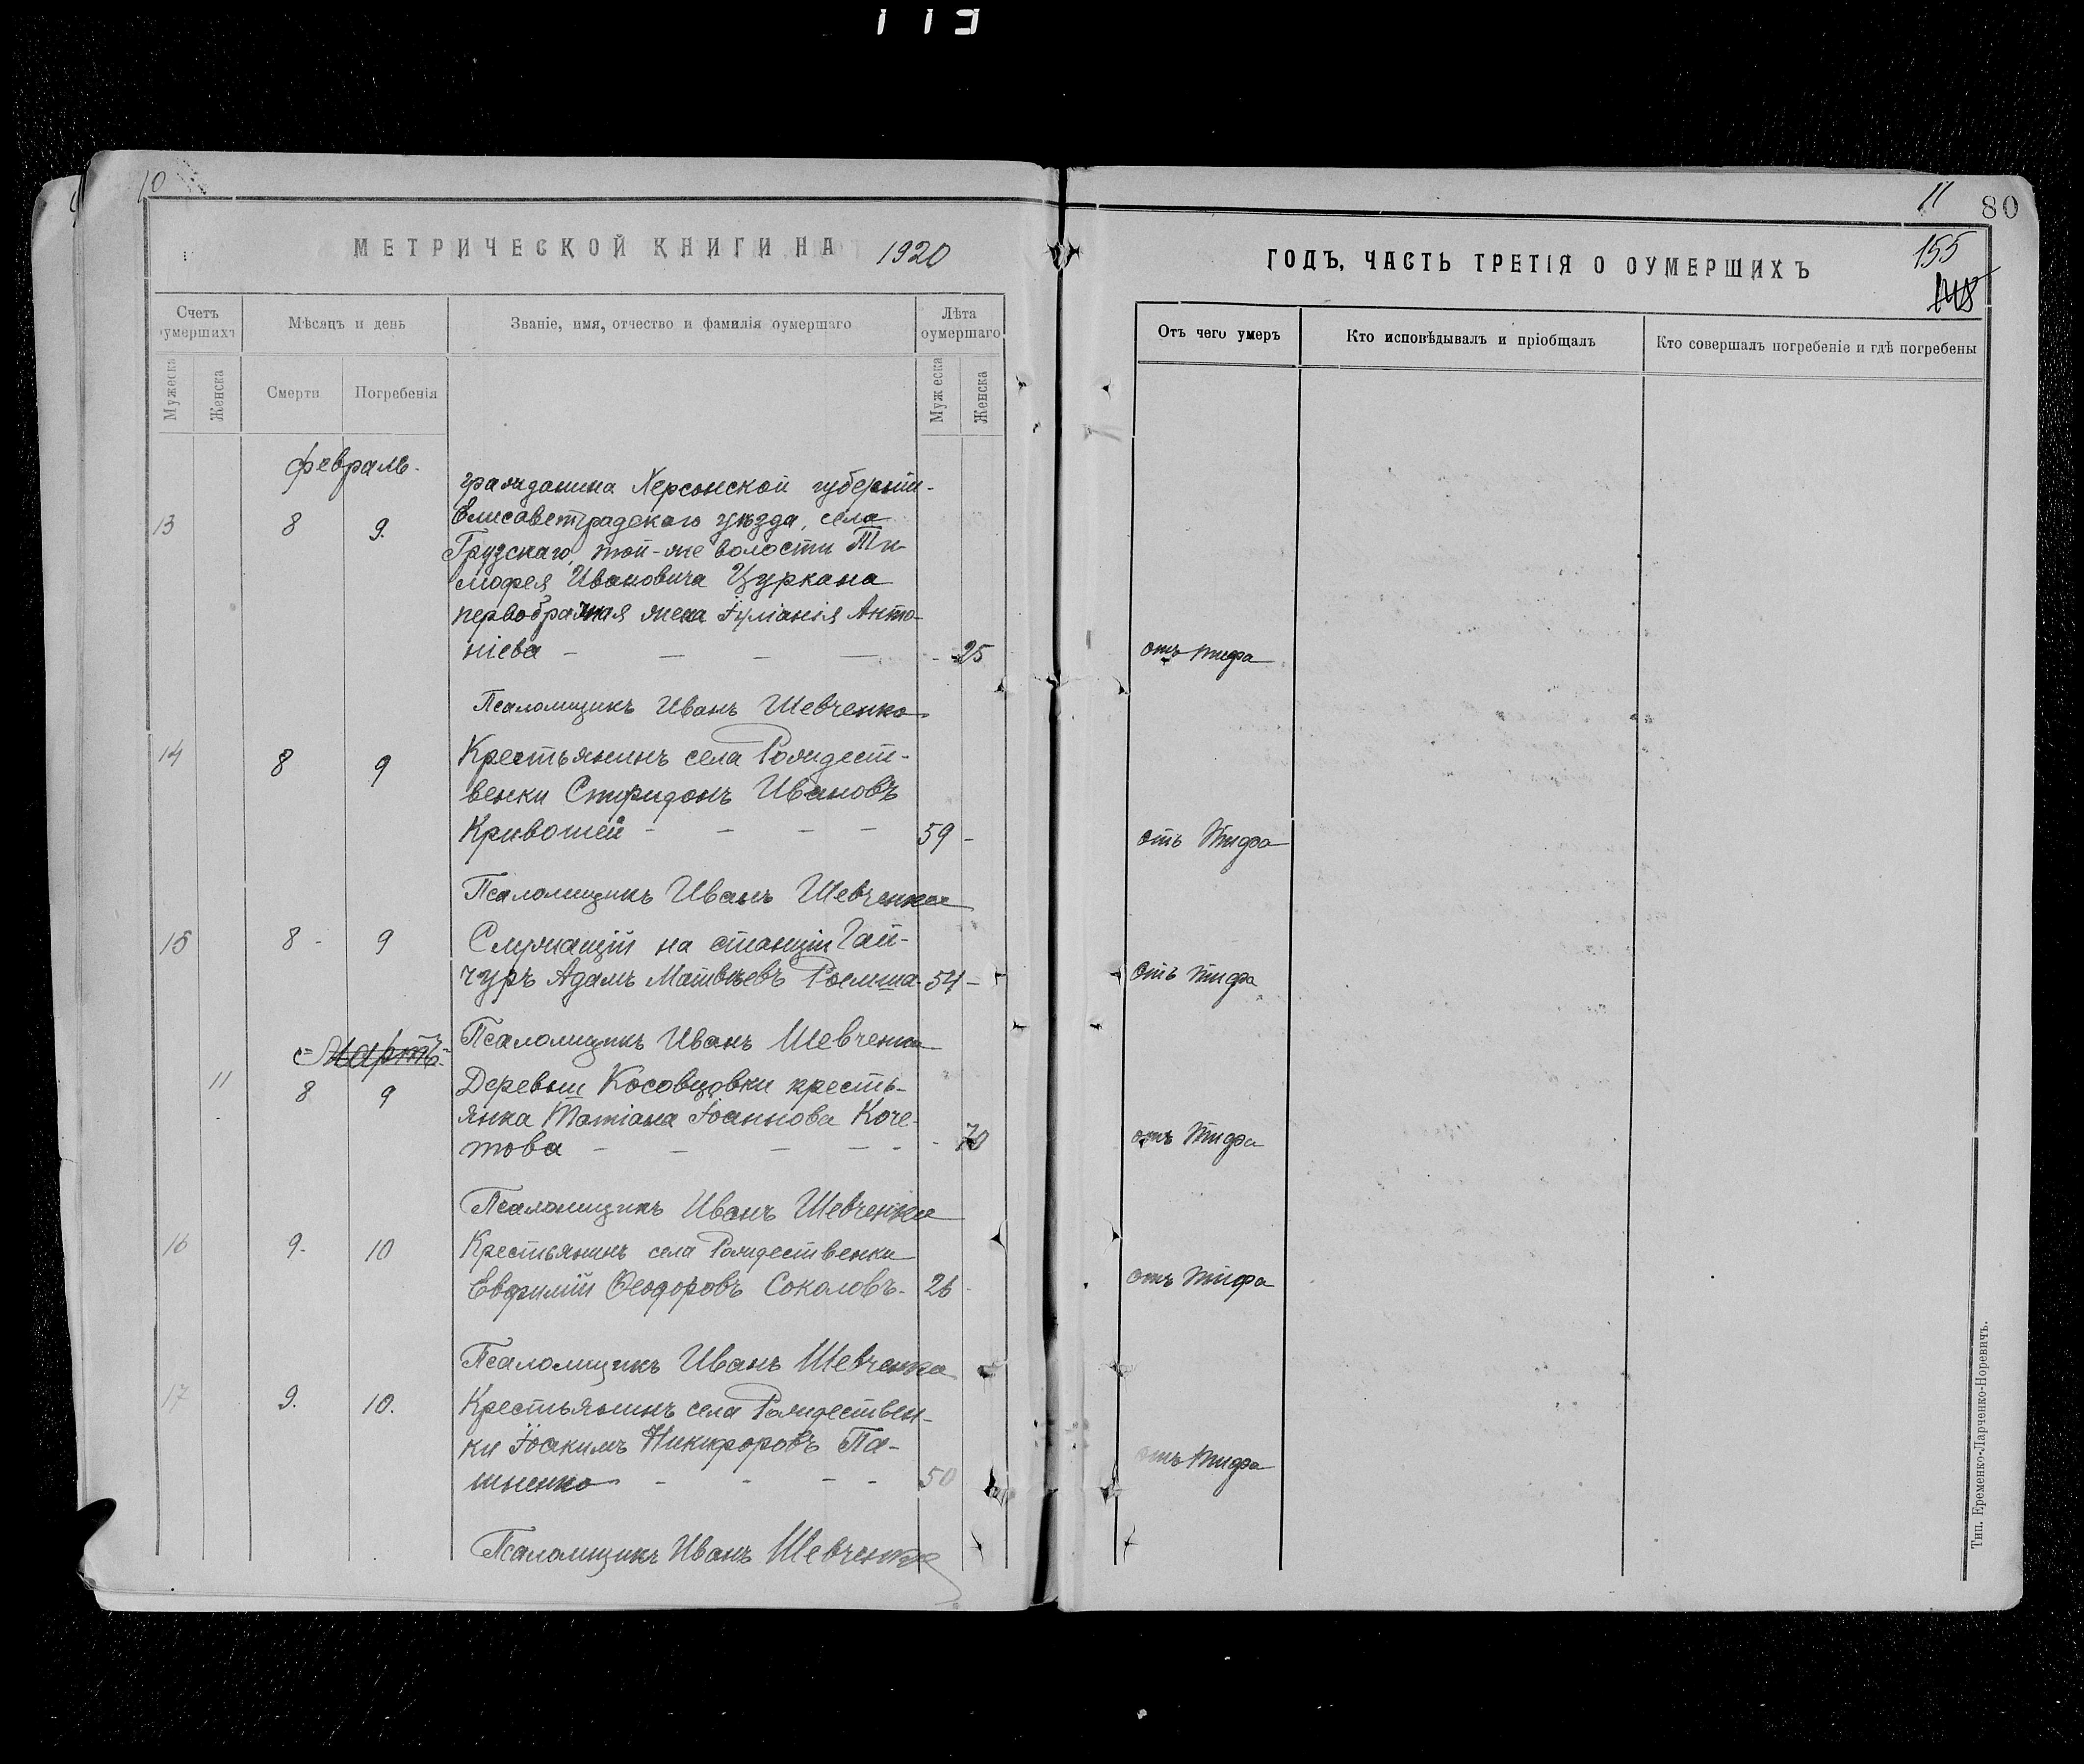 113
10
МЕТРИЧЕСКОЙ КНИГИ НА 1920
Счетъ оумершихъ
Мѣсяцъ и день
Званіе, имя, отчество и фамилія оумершаго
Лѣта оумершаго
Мужеска
Женска
Смерти
Погребенія
Мужеска
Женска
февраль.
гражданина Херсонской губерніи
13 8 9. Елисаветградскаго уѣзда, села
Грузскаго, той-же волости Ти-
мофея Ивановича Цуркана
первобрачная жена Іуліанія Анто-
ніева - - - - - 25
Псаломщикъ Иванъ Шевченко
14 8 9 Крестьянинъ села Рождест-
венки Спиридонъ Ивановъ
Кривошей - - - - 59 -
Псаломщикъ Иванъ Шевченко
15 8 - 9 Служащій на станціи Гай-
чуръ Адамъ Матвѣевъ 54 -
Псаломщикъ Иванъ Шевченко
Мартъ
11 8 9 Деревни Косовцовки кресть-
янка Татіана Іоаннова Коче-
това - - - - - 70
Псаломщикъ Иванъ Шевченко
16 9. 10 Крестьянинъ села Рождественки
Евфимій Ѳеодоровъ Соколовъ - 26 -
Псаломщикъ Иванъ Шевченко
17 9. 10. Крестьянинъ села Рождествен-
ки Іоакимъ Никифоровъ Па-
шненко - - - - 50
Псаломщикъ Иванъ Шевченко
11
80
ГОДЪ, ЧАСТЬ ТРЕТІЯ О ОУМЕРШИХЪ
155
148
Отъ чего умеръ
Кто исповѣдывалъ и пріобщалъ
Кто совершалъ погребеніе и гдѣ погребены
отъ тифа
отъ тифа
отъ тифа
отъ тифа
отъ тифа
отъ тифа
Тип. Еременко-Ларченко-Норевичъ.